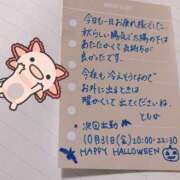 今日も一日お疲れ様でした
秋らしい陽気で太陽の下は
あたたかくて気持ちが
良かったです。
今夜も冷えそうなので
お外に出るときは
暖かくして出てくださいね。
次回出勤
10月31日(金)10:00-22:30
HAPPY HALLOWEEN